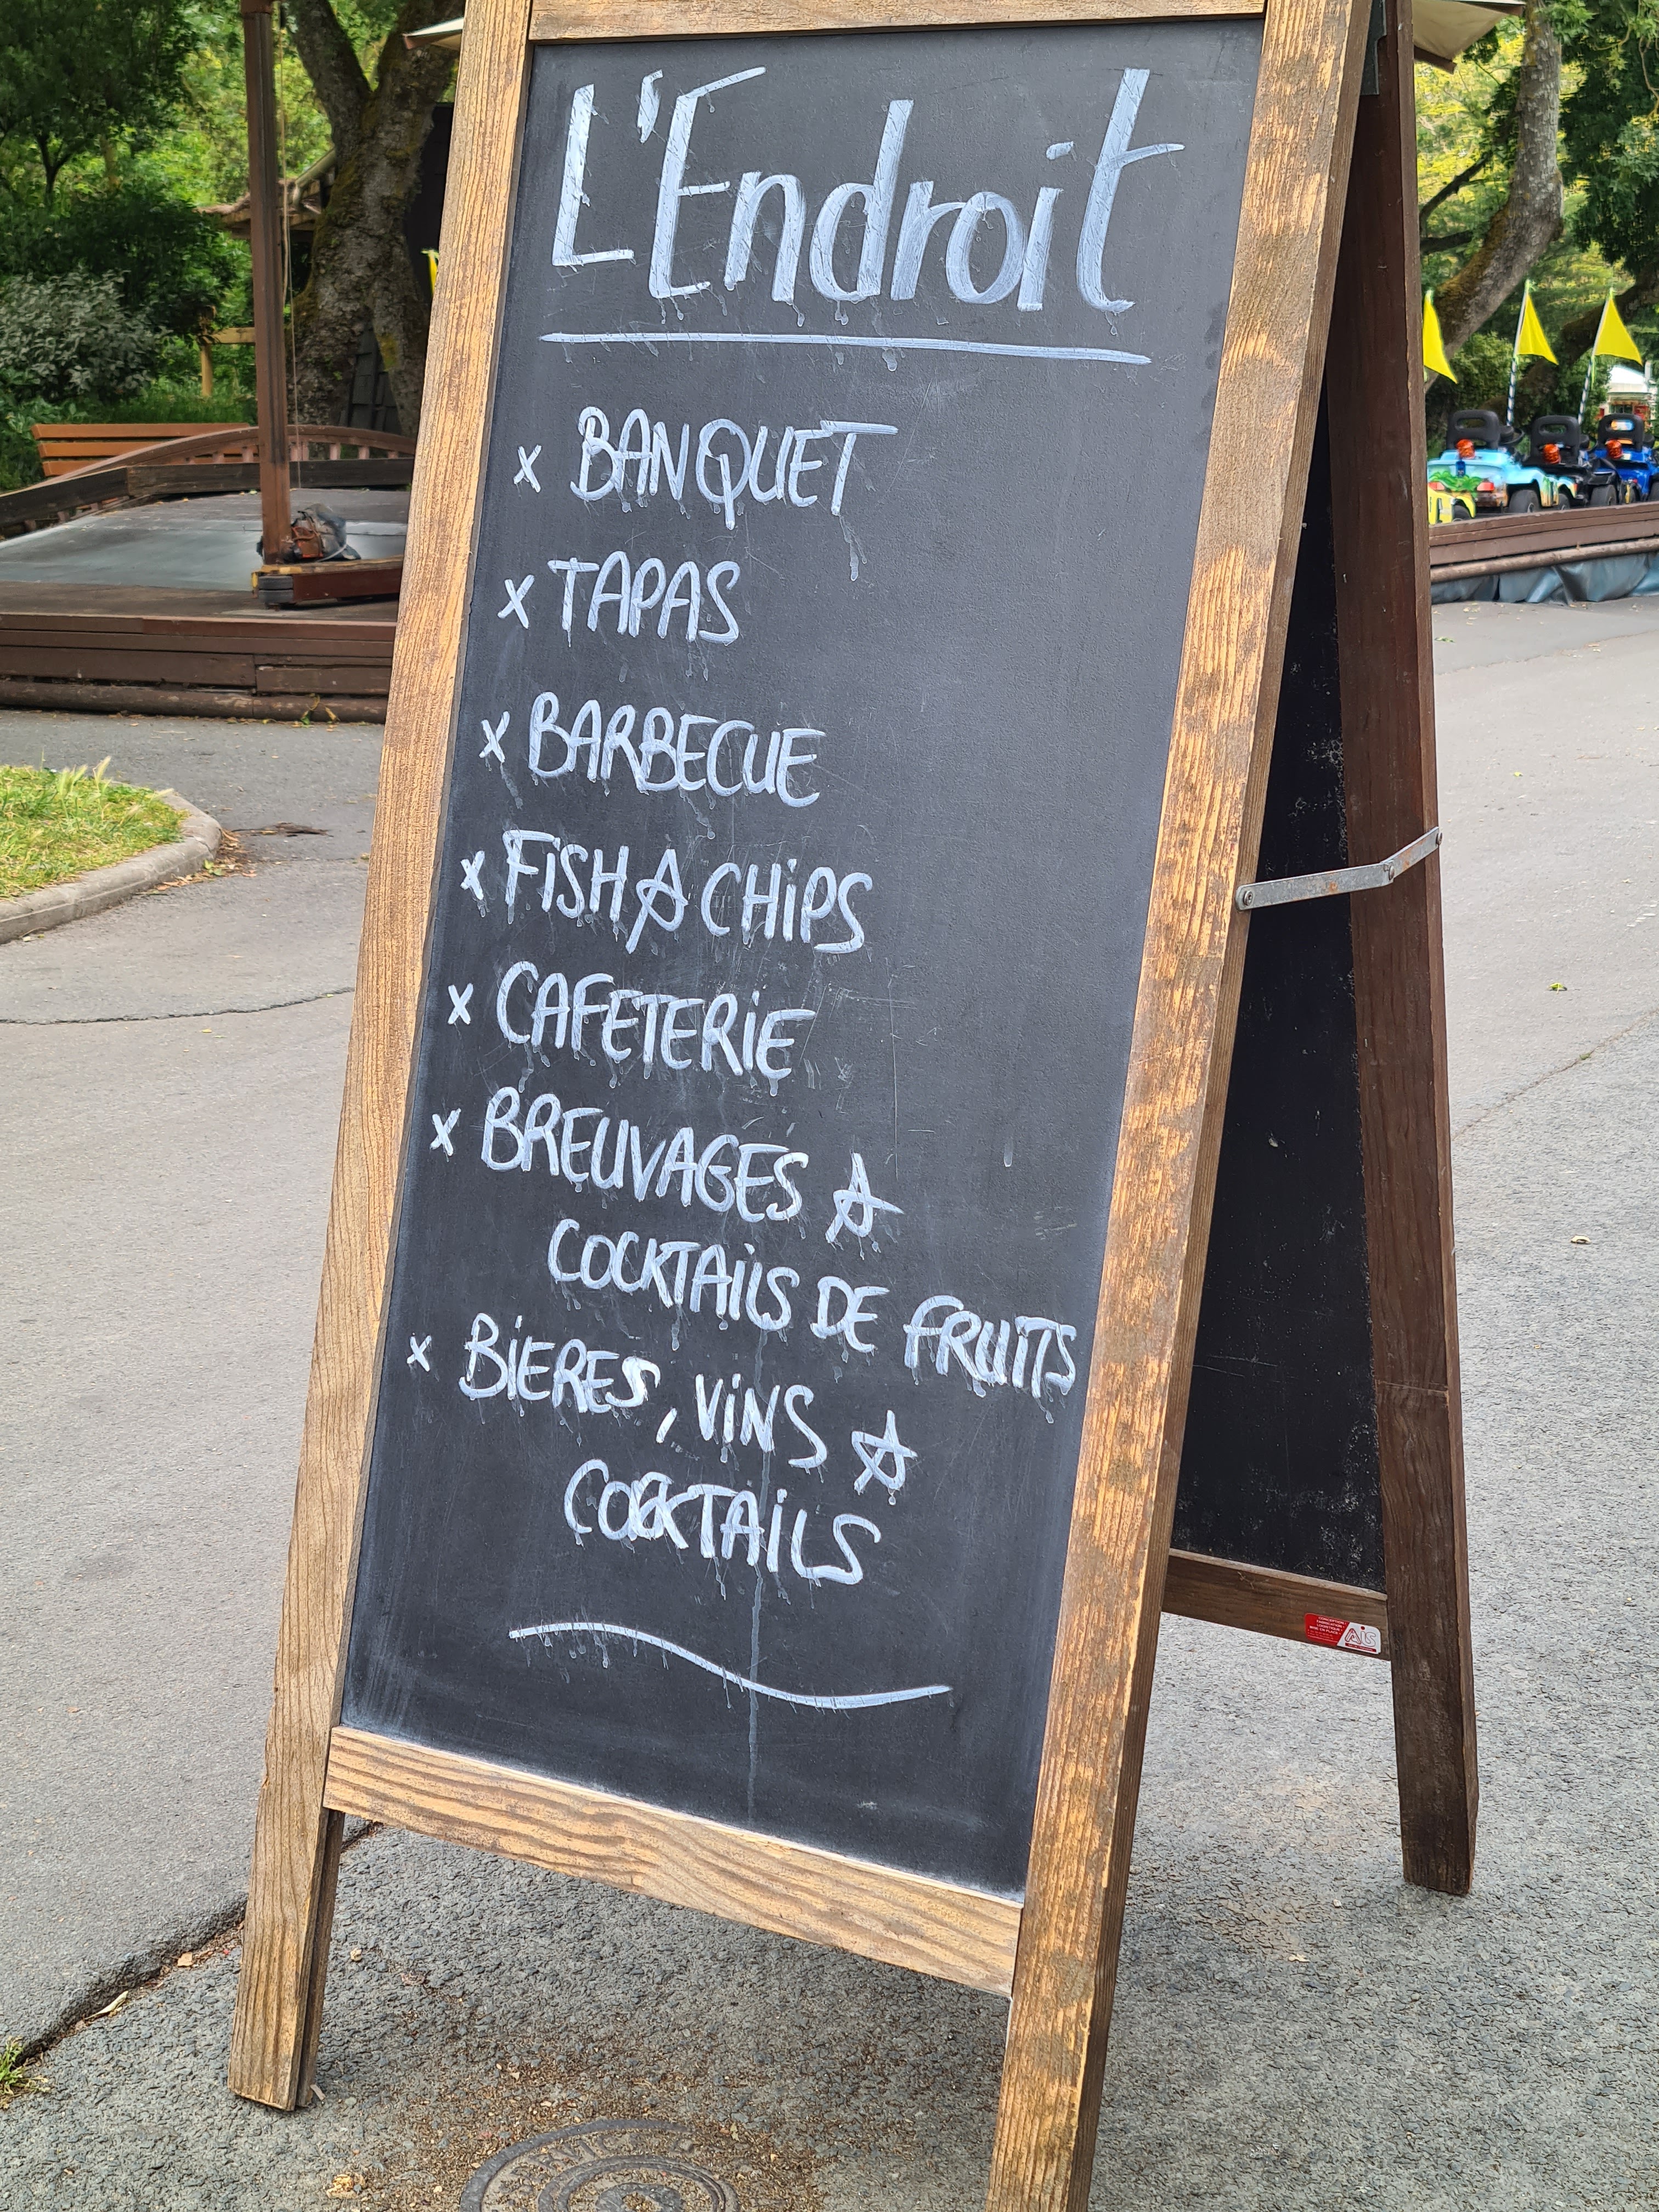 L'Endroit
x BANQUET
x TAPAS
x BARBECUE
x FiSH & CHiPS
x CAFETERiE
x BREUVAGES &
COCKTAiLS DE FRUITS
x BiERES, ViNS &
COCKTAiLS
AiS